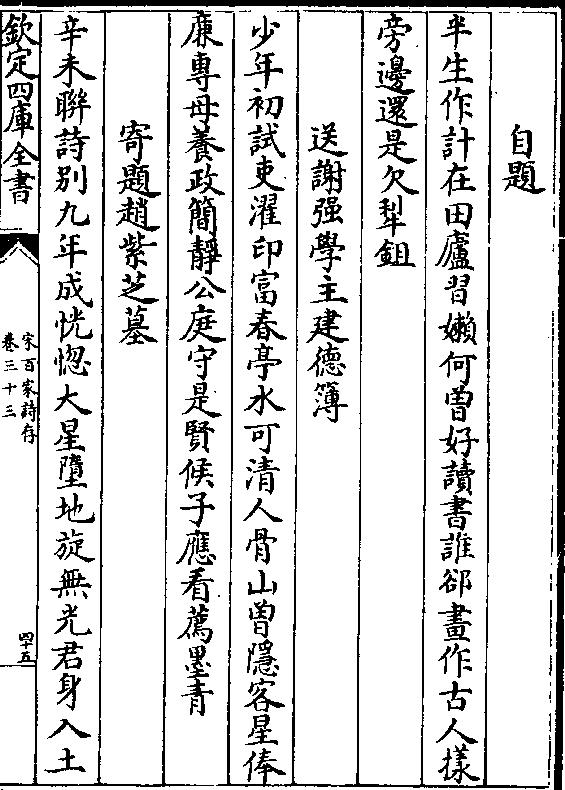 自題
半生作計在田廬習嬾何曾好讀書誰卻畫作古人樣
旁邊還是欠犁鉏
送謝强學主建德簿
少年初試吏濯印富春亭水可清人骨山曾隱客星俸
廉專母養政簡靜公庭守是賢候子應看薦墨青
寄題趙紫芝墓
辛未聨詩别九年成恍惚大星墮地旋無光君身入土
欽定四庫全書
宋百家詩存
卷三十三
四十五